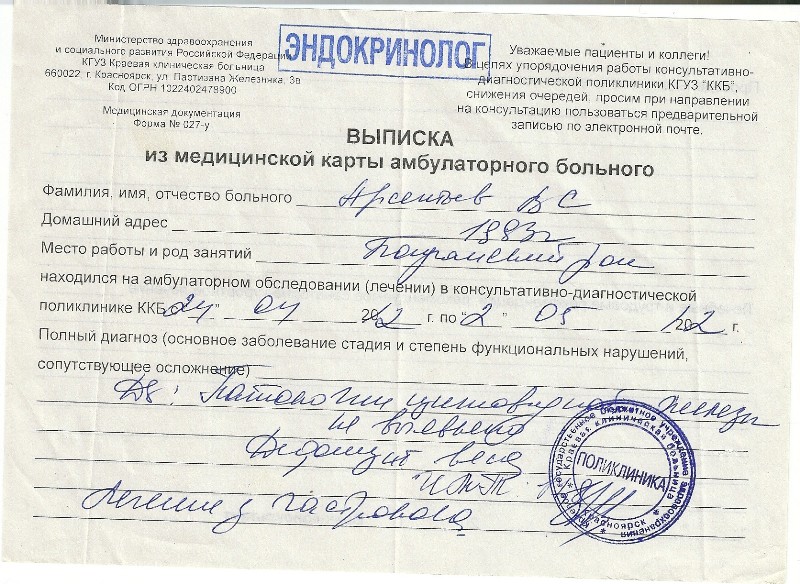 ЭНДОКРИНОЛОГ
Министерство здравоохранения
и социального развития Российской Федерации
КГУЗ Краевая клиническая больница
660022 г. Красноярск, ул. Партизана Железняка, 3в
Код ОГРН 1022402478900
Медицинская документация
Форма № 027-у
Уважаемые пациенты и коллеги!
В целях упорядочения работы консультативно-
диагностической поликлиники КГУЗ "ККБ",
снижения очередей, просим при направлении
на консультацию пользоваться предварительной
записью по электронной почте.
ВЫПИСКА
из медицинской карты амбулаторного больного
Фамилия, имя, отчество больного Арсентьев В С
Домашний адрес 1983г
Место работы и род занятий
находился на амбулаторном обследовании (лечении) в консультативно-диагностической
поликлинике ККБ "24" 04 2012 г. по "2" 05 2012 г.
Полный диагноз (основное заболевание стадия и степень функциональных нарушений,
сопутствующее осложнение)
Ds: Патологии щитовидной железы
не выявлено
Дефицит веса
ИМТ
Лечение у гастролога
ПОЛИКЛИНИКА
Краевая клиническая больница
Красноярск